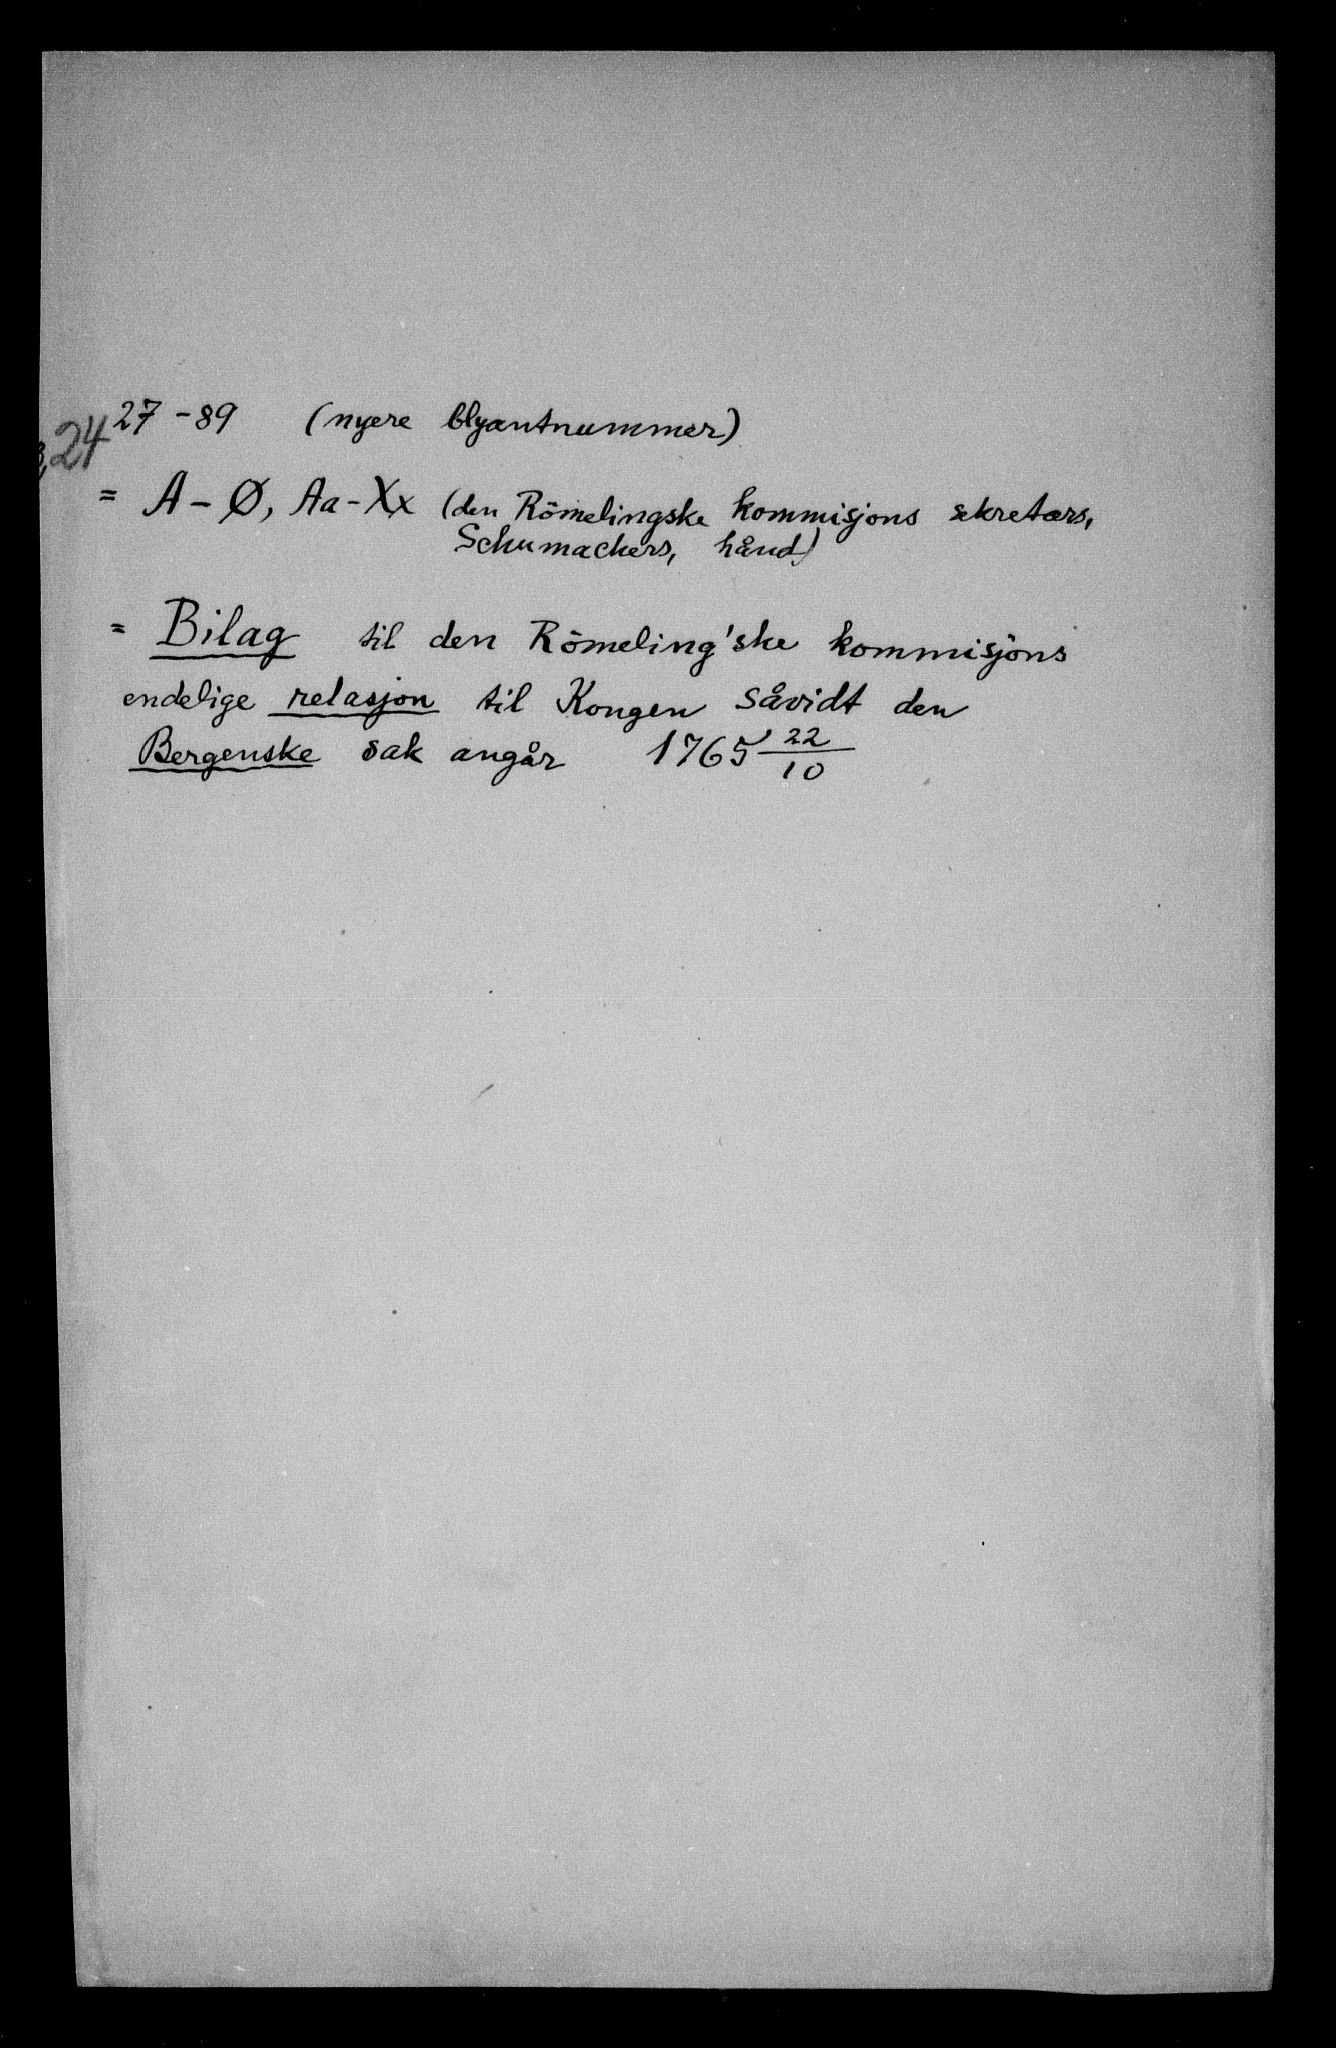 27 - 89 (nyere blyantnummer)
24
= A - Ø, Aa - Xx (den Römelingske kommisjons sekretærs,
Schumachers, hånd)
= Bilag til den Römeling'ske kommisjons
endelige relasjon til Kongen såvidt den
Bergenske sak angår 1765 22/10